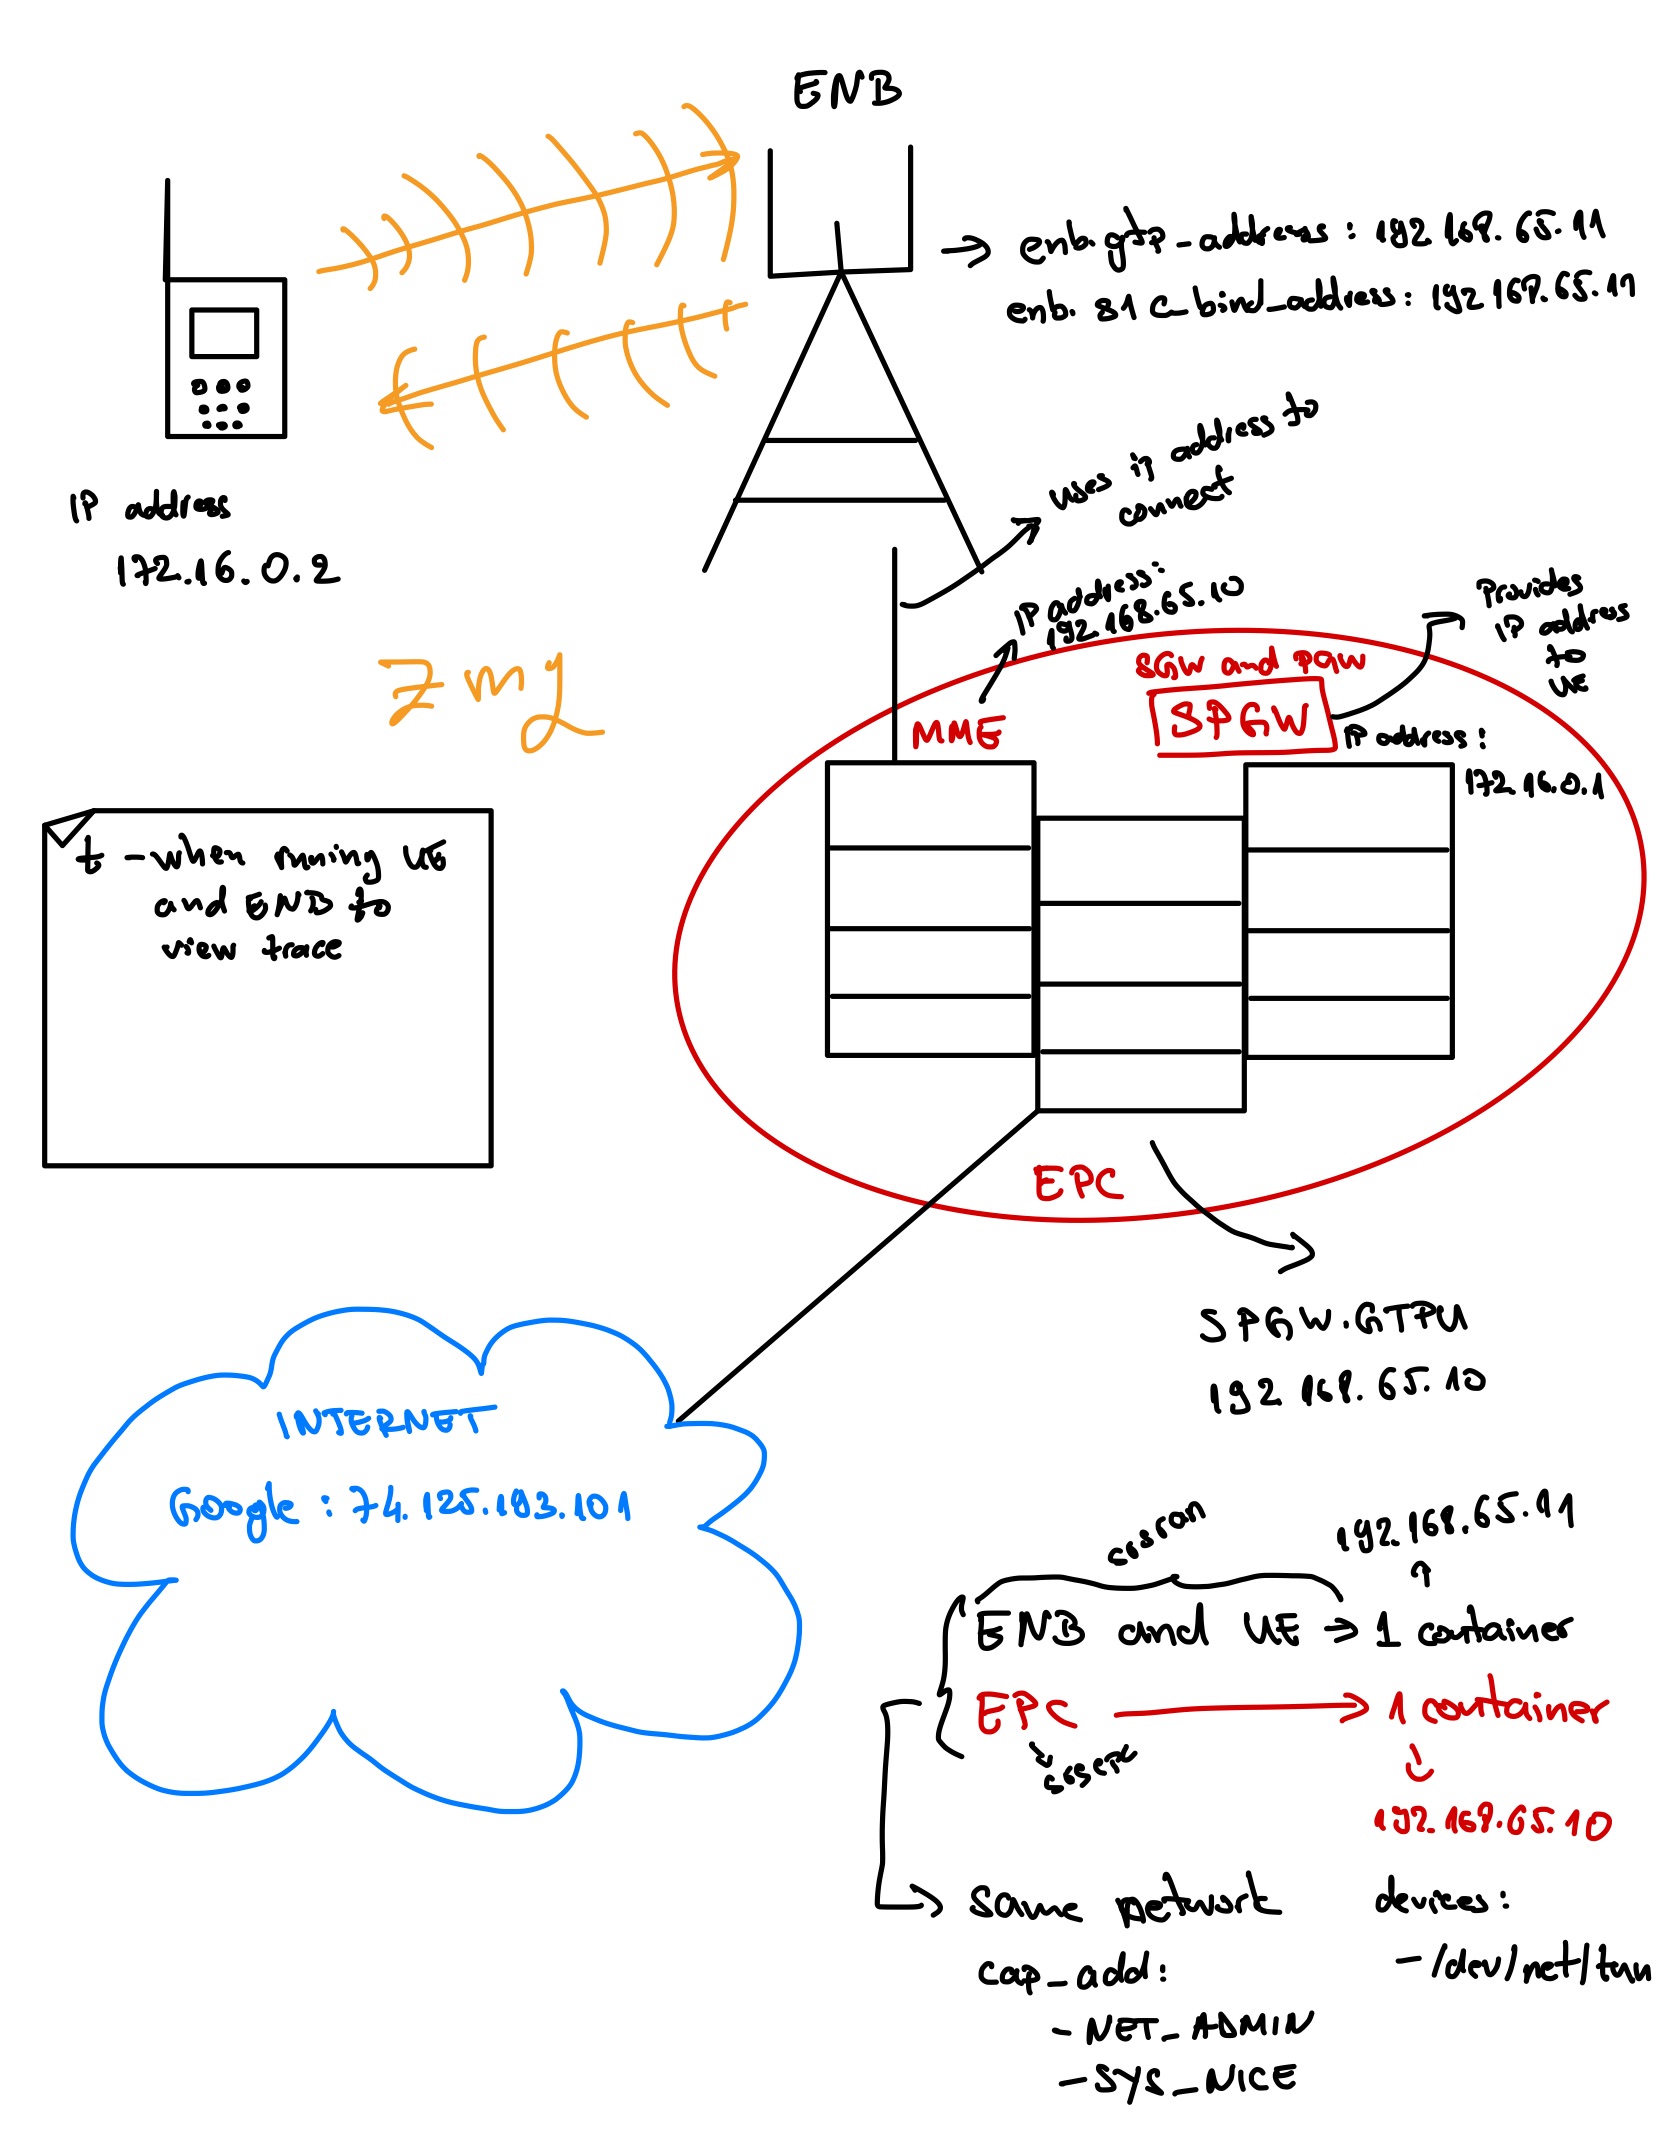 ENB
→ enb.gtp_address : 192.168.65.11
enb. s1c_bind_address: 192.168.65.11
uses ip address to
connect
IP address
172.16.0.2
IP address:
192.168.65.10
Provides
IP address
to
UE
SGW and PGW
SPGW
MME
IP address:
172.16.0.1
zmq
t - when running UE
and ENB to
view trace
EPC
SPGW.GTPU
192.168.65.10
INTERNET
Google : 74.125.193.101
192.168.65.11
ENB and UE → 1 container
EPC → 1 container
192.168.65.10
Same network
cap_add:
- NET_ADMIN
- SYS_NICE
devices:
- /dev/net/tun